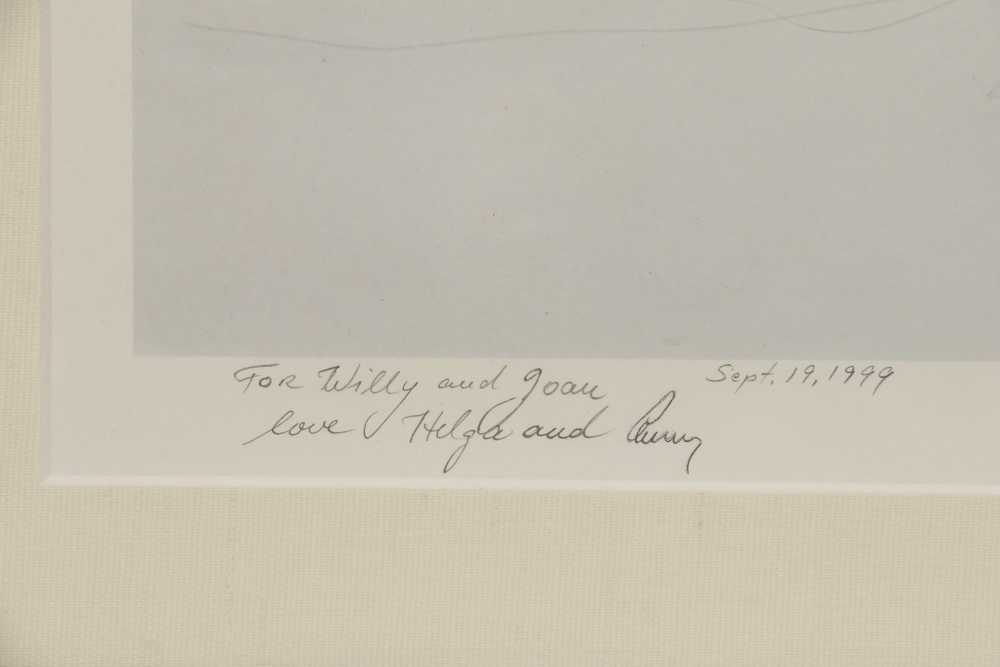 For Willy and Joan
Sept. 19, 1999
love Helga and